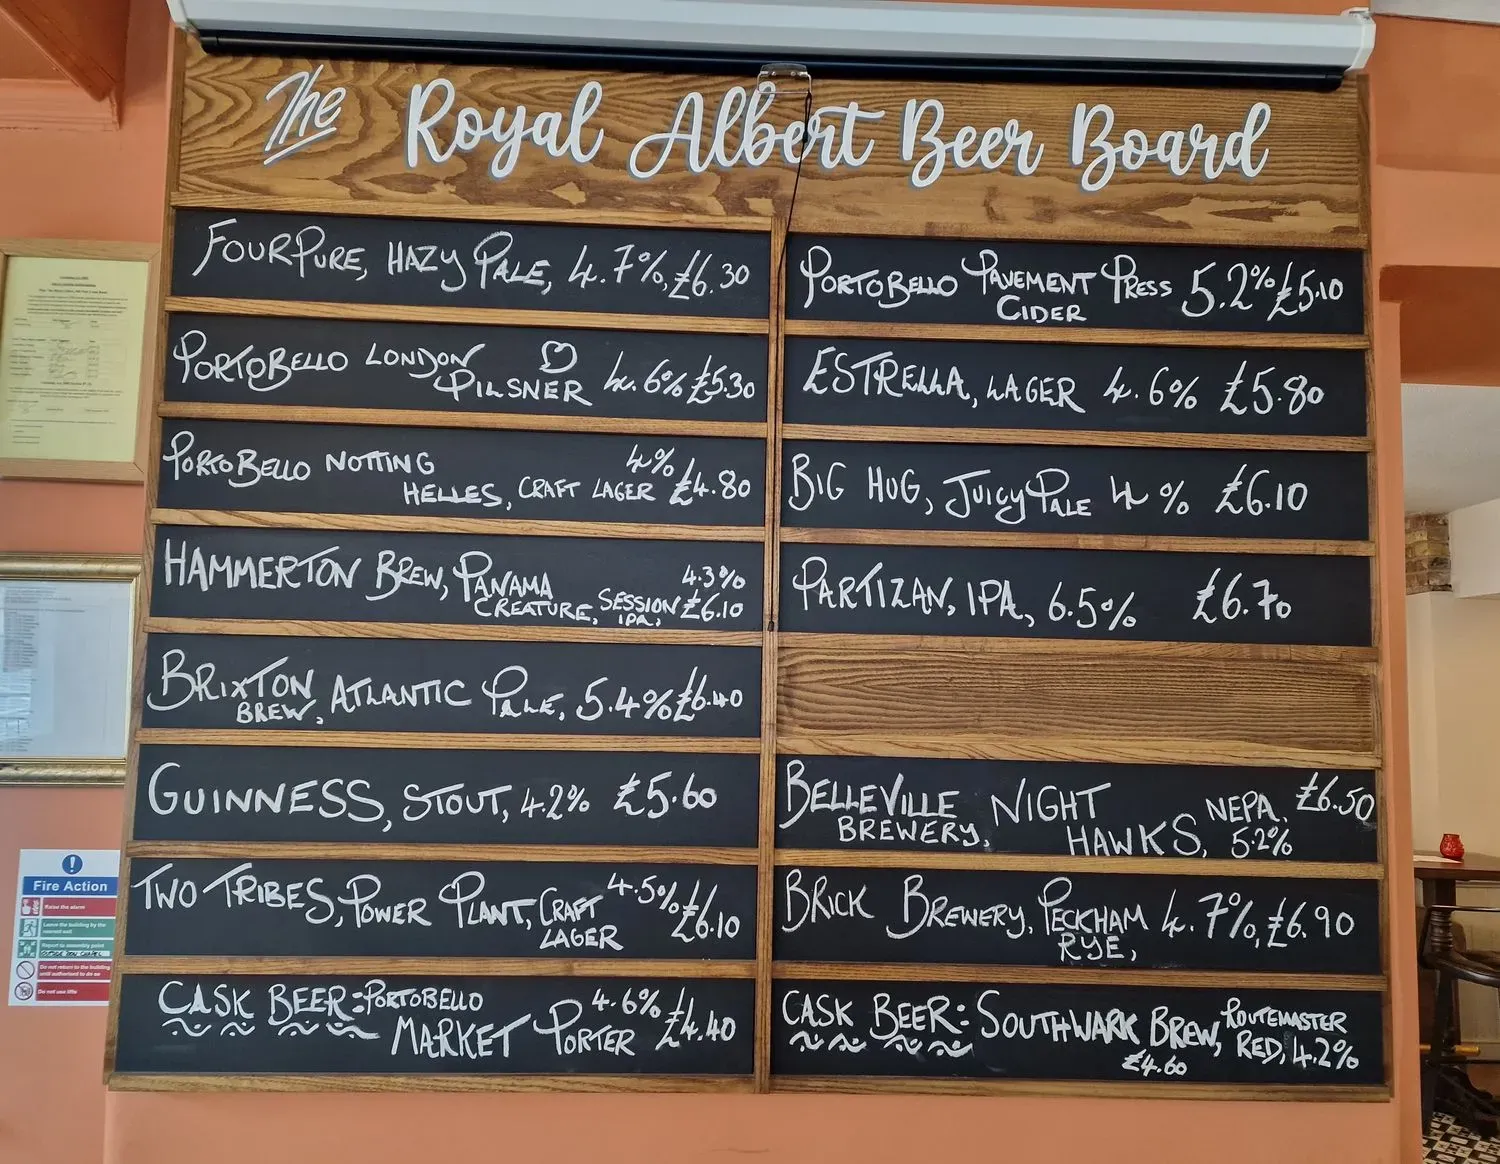 The Royal Albert Beer Board
FOURPURE, HAZY PALE, 4.7%, £6.30
PORTOBELLO LONDON
PILSNER 4.6% £5.30
PORTOBELLO NOTTING 4%
HELLES, CRAFT LAGER £4.80
HAMMERTON BREW, PANAMA 4.3%
CREATURE, SESSION £6.10
IPA,
BRIXTON ATLANTIC PALE, 5.4% £6.40
BREW,
GUINNESS, STOUT, 4.2% £5.60
TWO TRIBES, POWER PLANT, CRAFT 4.5% £6.10
LAGER
CASK BEER: PORTOBELLO 4.6% £4.40
MARKET PORTER
PORTOBELLO PAVEMENT PRESS 5.2% £5.10
CIDER
ESTRELLA, LAGER 4.6% £5.80
BIG HUG, JUICY PALE 4% £6.10
PARTIZAN, IPA, 6.5% £6.70
BELLEVILLE NIGHT NEPA. £6.50
BREWERY, HAWKS, 5.2%
BRICK BREWERY, PECKHAM 4.7%, £6.90
RYE,
CASK BEER: SOUTHWARK BREW, ROUTEMASTER
RED, 4.2%
£4.60
Fire Action
Raise the alarm
Leave the building by the
nearest exit
Report to assembly point
Do not return to the building
until authorised to do so
Do not use lifts